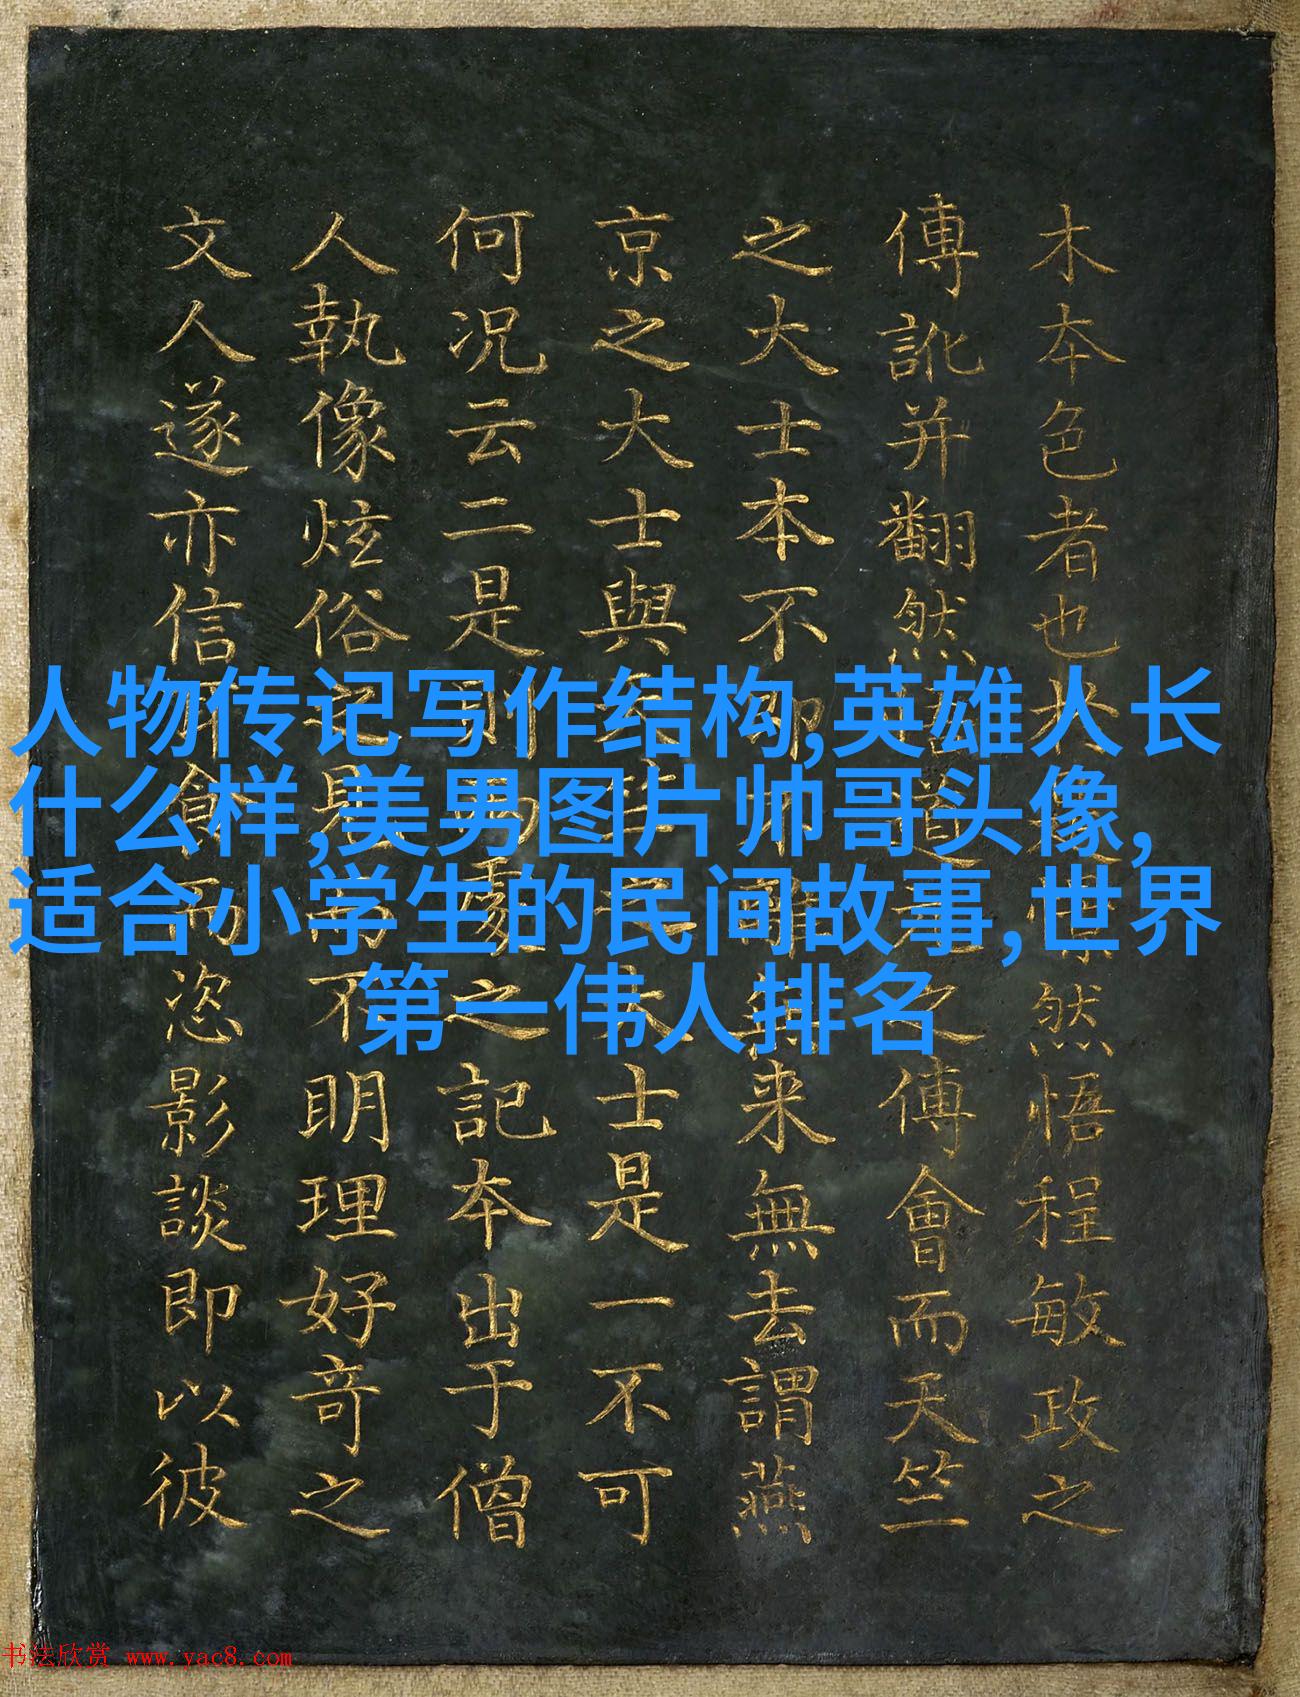 木本色者也然悟程敏政之
傳訛并翻然之傅會而天竺
之大士本不即離無来無去謂燕
京之大士與大士是一不可
何况云二是則之記本出于僧
人執像炫俗而不明理好奇之
文人遂亦信耳食而恣影談即以彼
人物传记写作结构,英雄人长
什么样,美男图片帅哥头像,
适合小学生的民间故事,世界
第一伟人排名
书法欣赏 www.yac8.com